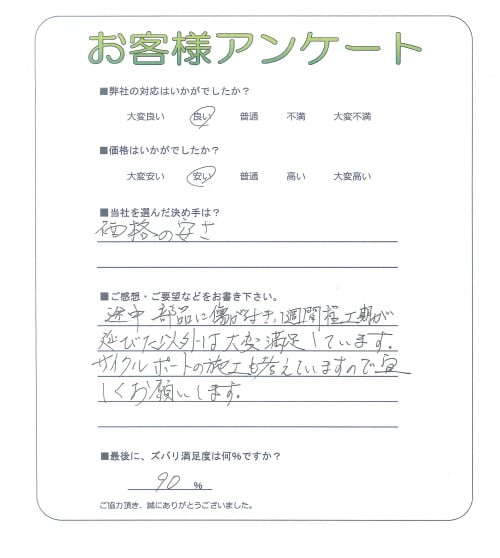 お客様アンケート
■弊社の対応はいかがでしたか？
大変良い 良い 普通 不満 大変不満
■価格はいかがでしたか？
大変安い 安い 普通 高い 大変高い
■当社を選んだ決め手は？
価格の安さ
■ご感想・ご要望などをお書き下さい。
途中 部品に傷が付き、1週間程工期が
延びた以外は大変満足しています。
サイクルポートの施工も考えていますので宜
しくお願いします。
■最後に、ズバリ満足度は何％ですか？
90 %
ご協力頂き、誠にありがとうございました。